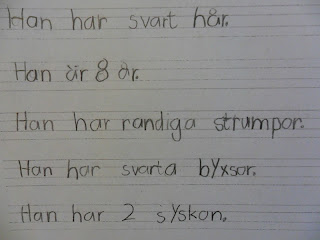 Han har svart hår.
Han är 8 år.
Han har randiga strumpor.
Han har svarta byxsor.
Han har 2 syskon.